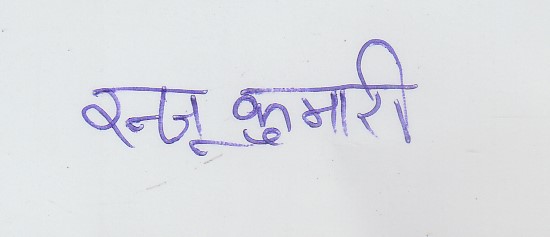 रन्जू कुमारी